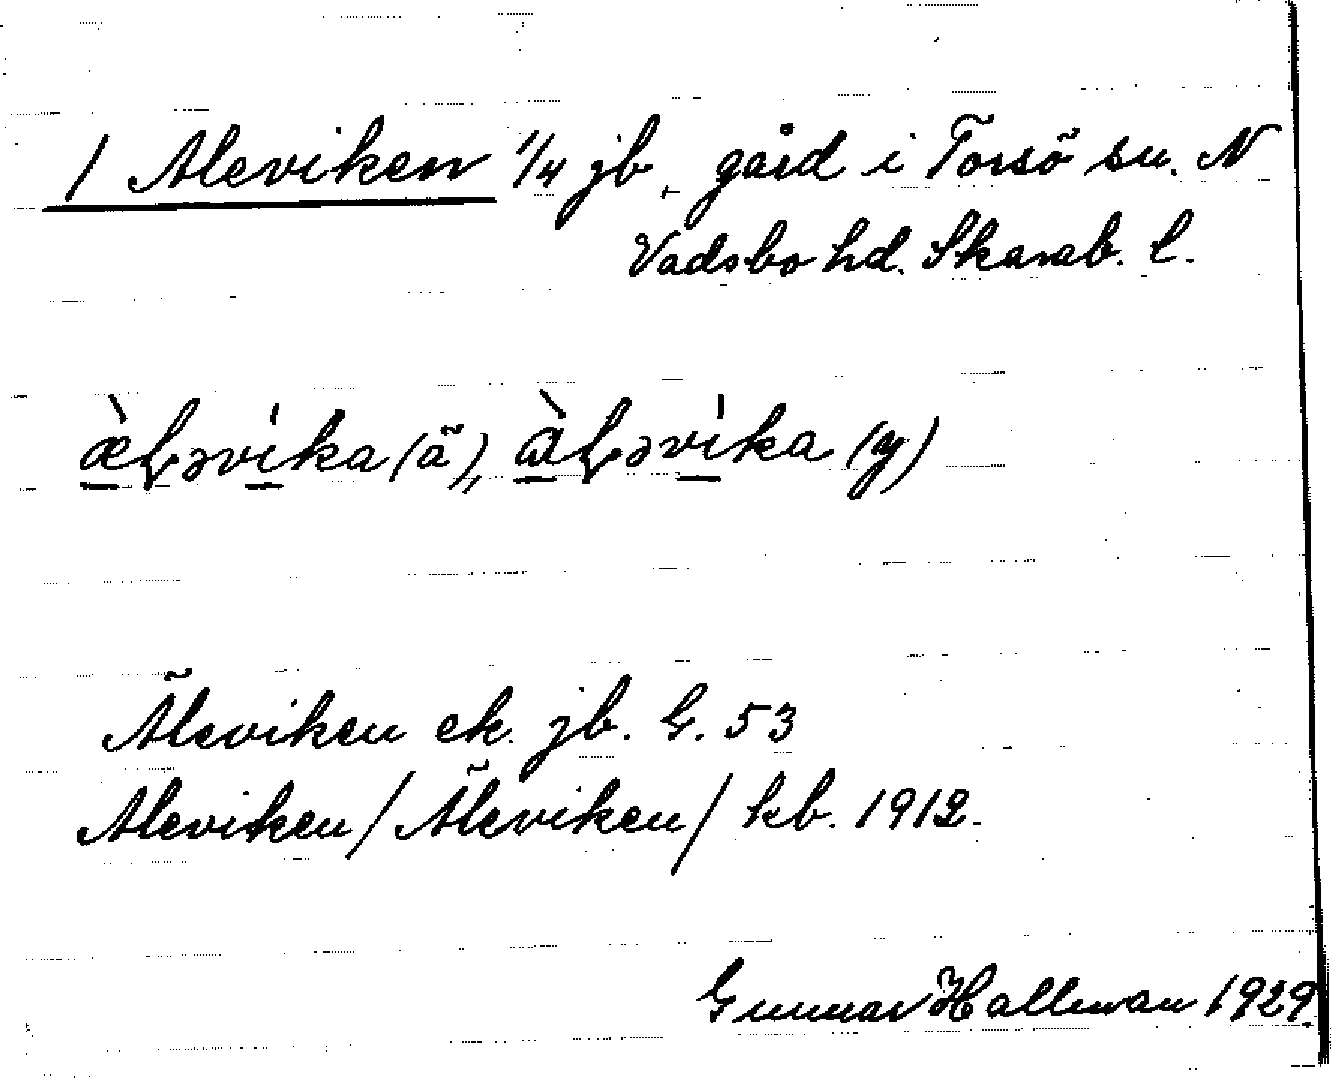 / Aleviken 1/4 jb, gård i Torsö sn. N
Vadsbo hd. Skarab. l.
æ̀ɭəvi̍ka (ä), àɭəvi̍ka (y)
Äleviken ek. jb. G. 53
Aleviken / Äleviken / kb. 1912.
Gunnar Hallman 1929